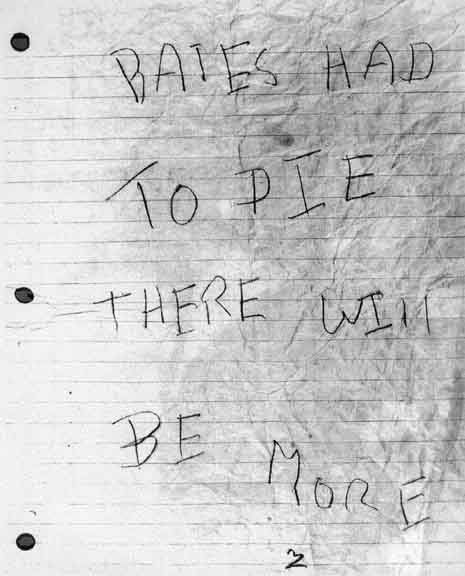 BATES HAD
TO DIE
THERE WIll
BE MORE